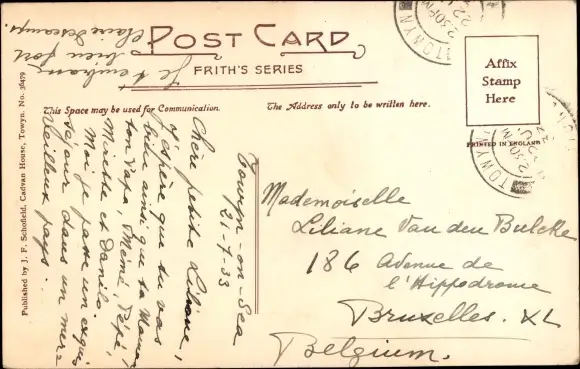 POST CARD
FRITH'S SERIES
This Space may be used for Communication.
The Address only to be written here.
Affix
Stamp
Here
PRINTED IN ENGLAND
Published by J. F. Schofield, Cadvan House, Towyn. No. 36479
TOWYN
12.30 PM
22
TOWYN
12.30 PM
Towyn-on-Sea
21-7-33
Chère petite Liliane,
J'espère que tu vas
bien ainsi que ta Maman
ton Papa, Mémé, Pépé,
Mirette et Danilo.
Moi je passe un exquis
séjour dans un mer-
veilleux pays.
Je t'embrasse
bien fort
Claire
Mademoiselle
Liliane Van den Bulcke
186 Avenue de
l'Hippodrome
Bruxelles. XL
Belgium.